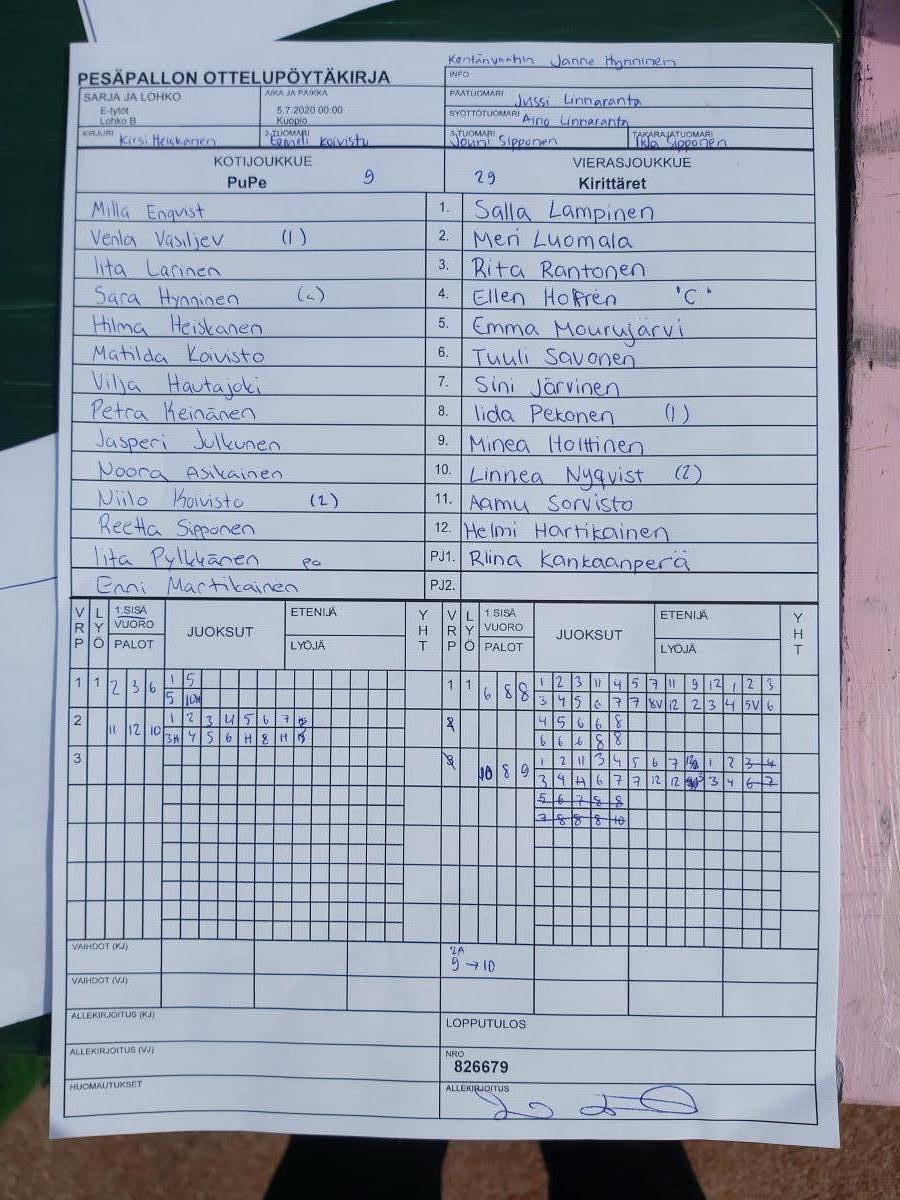 Kentänvanhin Janne Hynninen
PESÄPALLON OTTELUPÖYTÄKIRJA
INFO
SARJA JA LOHKO
E-tytöt
Lohko B
AIKA JA PAIKKA
5.7.2020 00:00
Kuopio
PÄÄTUOMARI Jussi Linnaranta
SYÖTTÖTUOMARI Aino Linnaranta
KIRJURI Kirsi Heiskanen
2-TUOMARI Eemeli Koivisto
3-TUOMARI Jouni Sipponen
TAKARAJATUOMARI Iida Sipponen
KOTIJOUKKUE
PuPe 9
VIERASJOUKKUE
29 Kirittäret
Milla Enqvist 1. Salla Lampinen
Venla Vasiljev (1) 2. Meri Luomala
Iita Larinen 3. Rita Rantonen
Sara Hynninen 4. Ellen Hoffrén "C"
Hilma Heiskanen 5. Emma Mourujärvi
Matilda Koivisto 6. Tuuli Savonen
Vilja Hautajoki 7. Sini Järvinen
Petra Keinänen 8. Iida Pekonen (1)
Jasperi Julkunen 9. Minea Holttinen
Noora Asikainen 10. Linnea Nyqvist (2)
Niilo Koivisto (2) 11. Aamu Sorvisto
Reetta Sipponen 12. Helmi Hartikainen
Iita Pylkkänen PJ1. Riina Kankaanperä
Enni Martikainen PJ2.
VRP LYÖ 1.SISÄ VUORO PALOT JUOKSUT ETENIJÄ LYÖJÄ YHT
VRP LYÖ 1.SISÄ VUORO PALOT JUOKSUT ETENIJÄ LYÖJÄ YHT
1 1 2 3 6 1 5
5
1 1 6 8 8 1 2 3 11 4 5 7 11 9 12 1 2 3
3 4 5 6 7 7 8V 12 2 3 4 5V 6
2 11 12 10 1 2 3 4 5 6 7
3H 4 5 6 H 8 H
2 4 5 6 6 8
6 6 6 8 8
3
3 10 8 9 1 2 11 3 4 5 6 7 1 2 3 4
3 4 H 6 7 7 12 12 3 4 6 7
5 6 7 8 8
7 8 8 8 10
VAIHDOT (KJ)
2A
9 → 10
VAIHDOT (VJ)
ALLEKIRJOITUS (KJ)
LOPPUTULOS
ALLEKIRJOITUS (VJ)
NRO
826679
HUOMAUTUKSET
ALLEKIRJOITUS